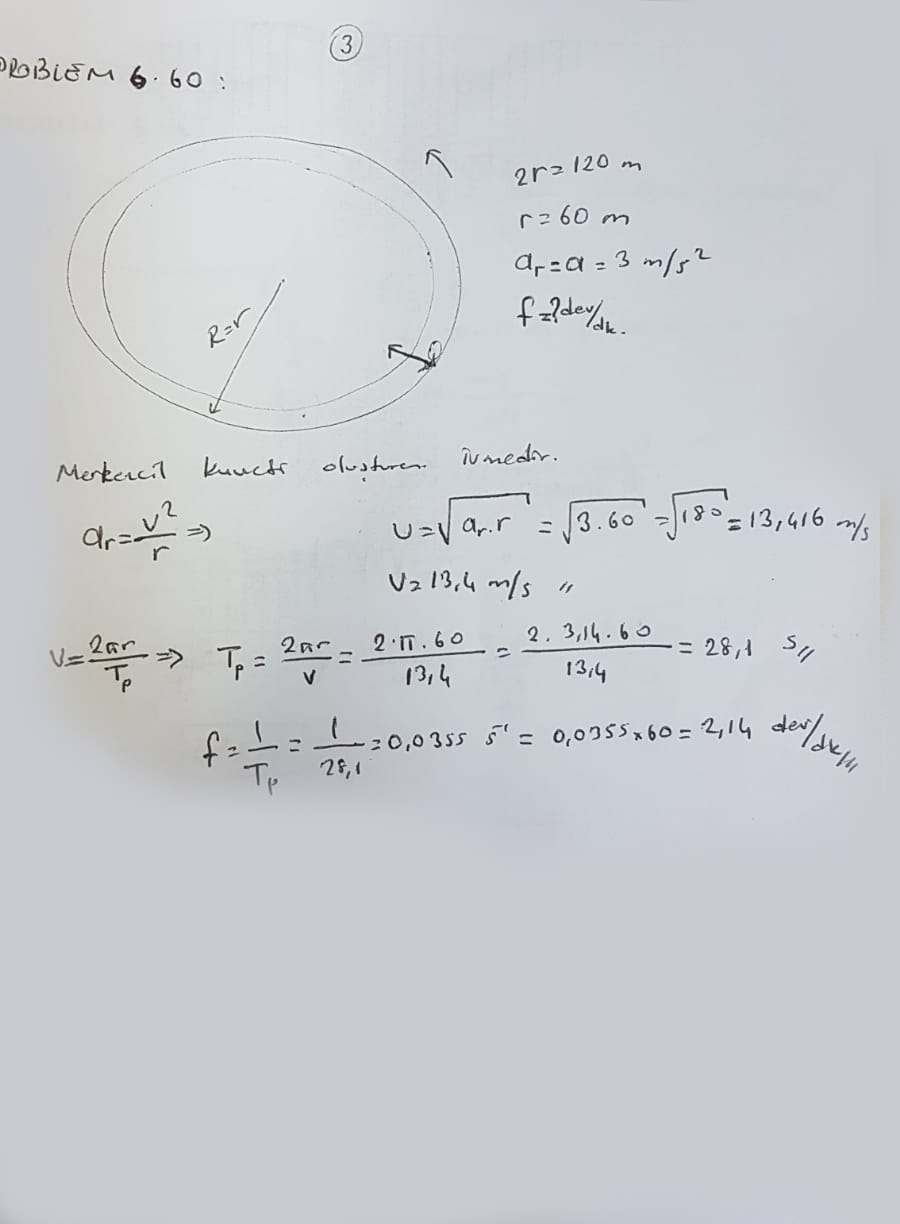 3
PROBLEM 6.60:
2r = 120 m
r = 60 m
ar = a = 3 m/s²
f = ? dev/dk.
R=r
Merkezcil kuvveti oluşturan ivmedir.
ar = v²/r ⇒ v = √ar.r = √3.60 = √180 = 13,416 m/s
v = 13,4 m/s //
v = 2πr/Tp ⇒ Tp = 2πr/v = 2.π.60/13,4 = 2.3,14.60/13,4 = 28,1 s//
f = 1/Tp = 1/28,1 = 0,0355 s⁻¹ = 0,0355x60 = 2,14 dev/dk///